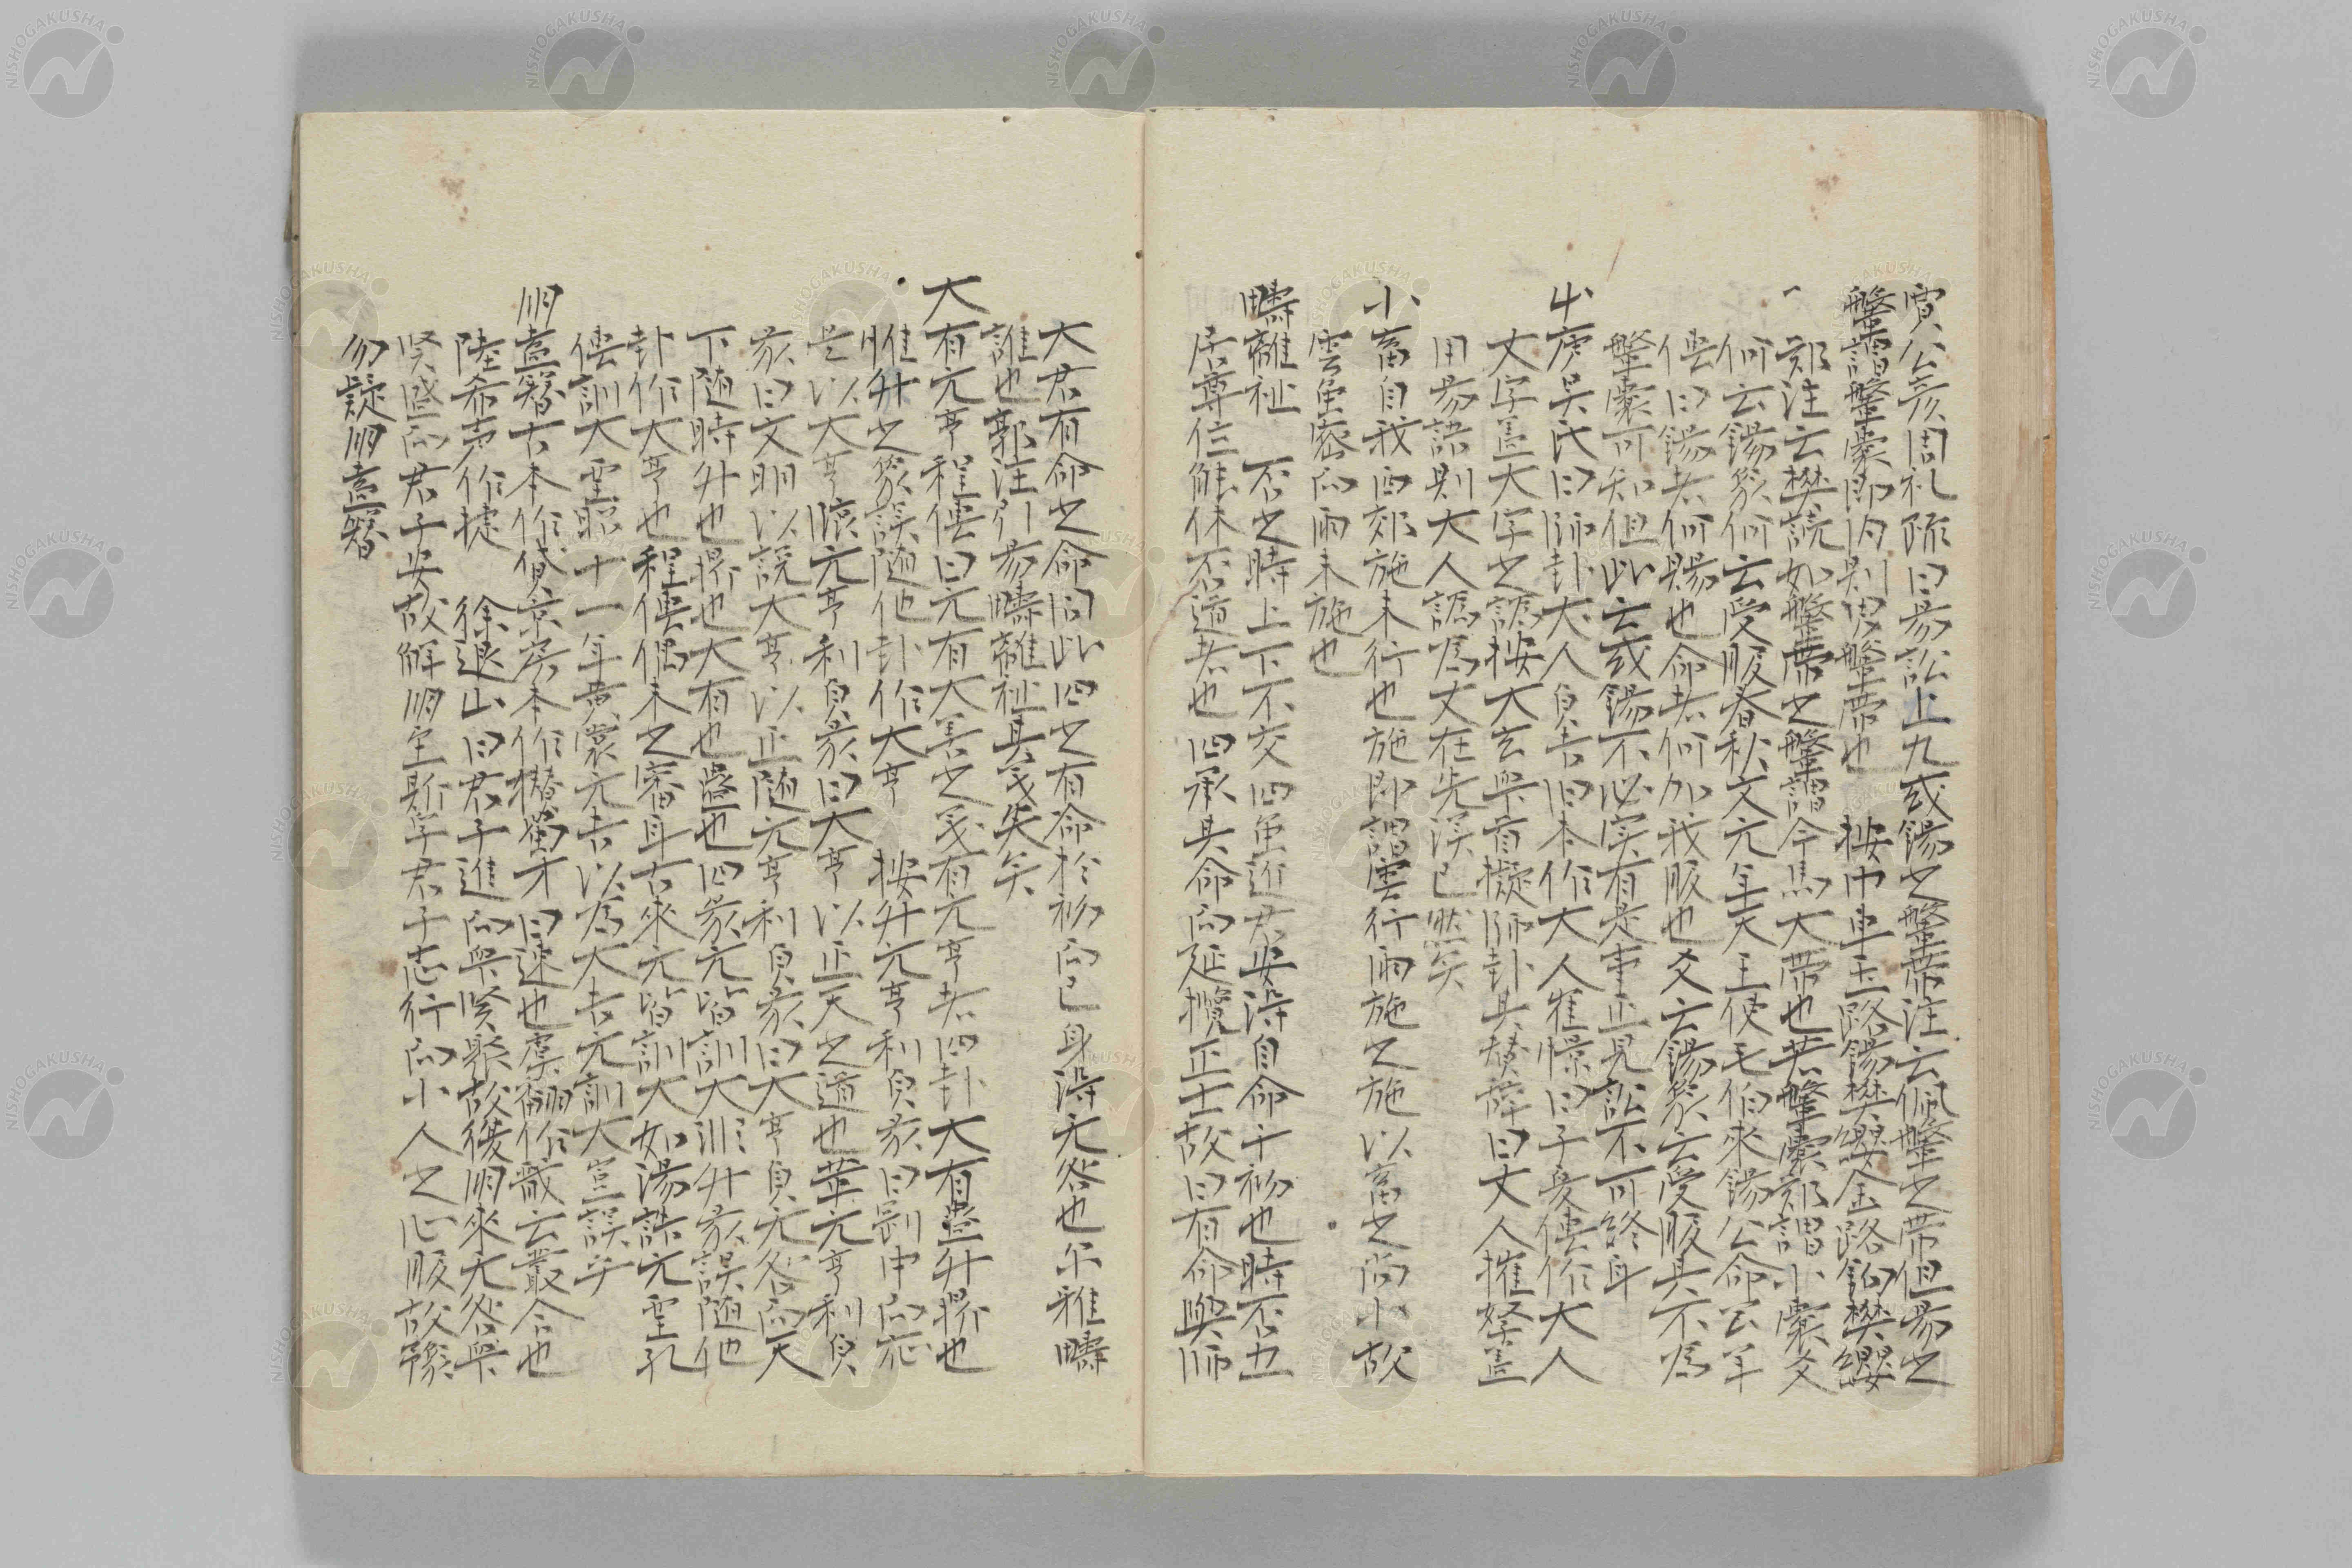 賈公彦周礼疏曰易訟上九或錫之鞶帶注云佩鞶之帶但易之
鞶謂鞶囊即内則男鞶帶也 按巾車玉路錫樊纓金路鉤樊纓
一 鄭注云樊読如鞶帶之鞶謂今馬大帶也其鞶囊鄭謂小囊爻
何云錫象何云受服春秋文元年天王使毛伯來錫公命公羊
傳曰錫者何賜也命者何加我服也爻云錫象云受服其不為
鞶囊可知但此云或錫不必実有是事正見訟不可終身
史庚吳氏曰師卦大人貞吉旧本作大人崔憬曰子夏傳作大人
丈字盖大字之譌按大玄眾首擬師卦其賛辞曰丈人摧孥盖
用易語則大人譌為丈在先漢已然矣
小畜自我西郊施未行也施即謂雲行雨施之施以畜之尚小故
雲虽密而雨未施也
疇離祉 否之時上下不交四虽近君安得自命于初也時否五
居尊位能休否道者也四承其命而延攬正士故曰有命與師
大君有命之命同此四之有命於初而已身得无咎也尓雅疇
誰也郭注引易疇離祉其義失矣
大有元亨程傳曰元有大善之義有元亨者四卦大有蛊升鼎也
惟升之彖誤随他卦作大亨 按升元亨利貞彖曰剛中而応
是以大亨臨元亨利貞彖曰大亨以正天之道也革元亨利貞
彖曰文明以説大亨以正随元亨利貞彖曰大亨貞无咎而天
下随時升也鼎也大有也蛊也四彖元皆訓大訓升彖誤随他
卦作大亨也程傳偶未之審耳古來元皆訓大如湯誥元聖孔
傳訓大聖昭十一年黄裳元吉以為大吉元訓大豈誤乎
朋盍簪古本作貸京房本作撍蜀才曰速也虞翻作戠云叢合也
陸希声作捷 徐退山曰君子進而眾賢聚故復朋來无咎眾
賢盛而君子安故解朋至斯孚君子志行而小人之心服故豫
勿疑朋盍簪